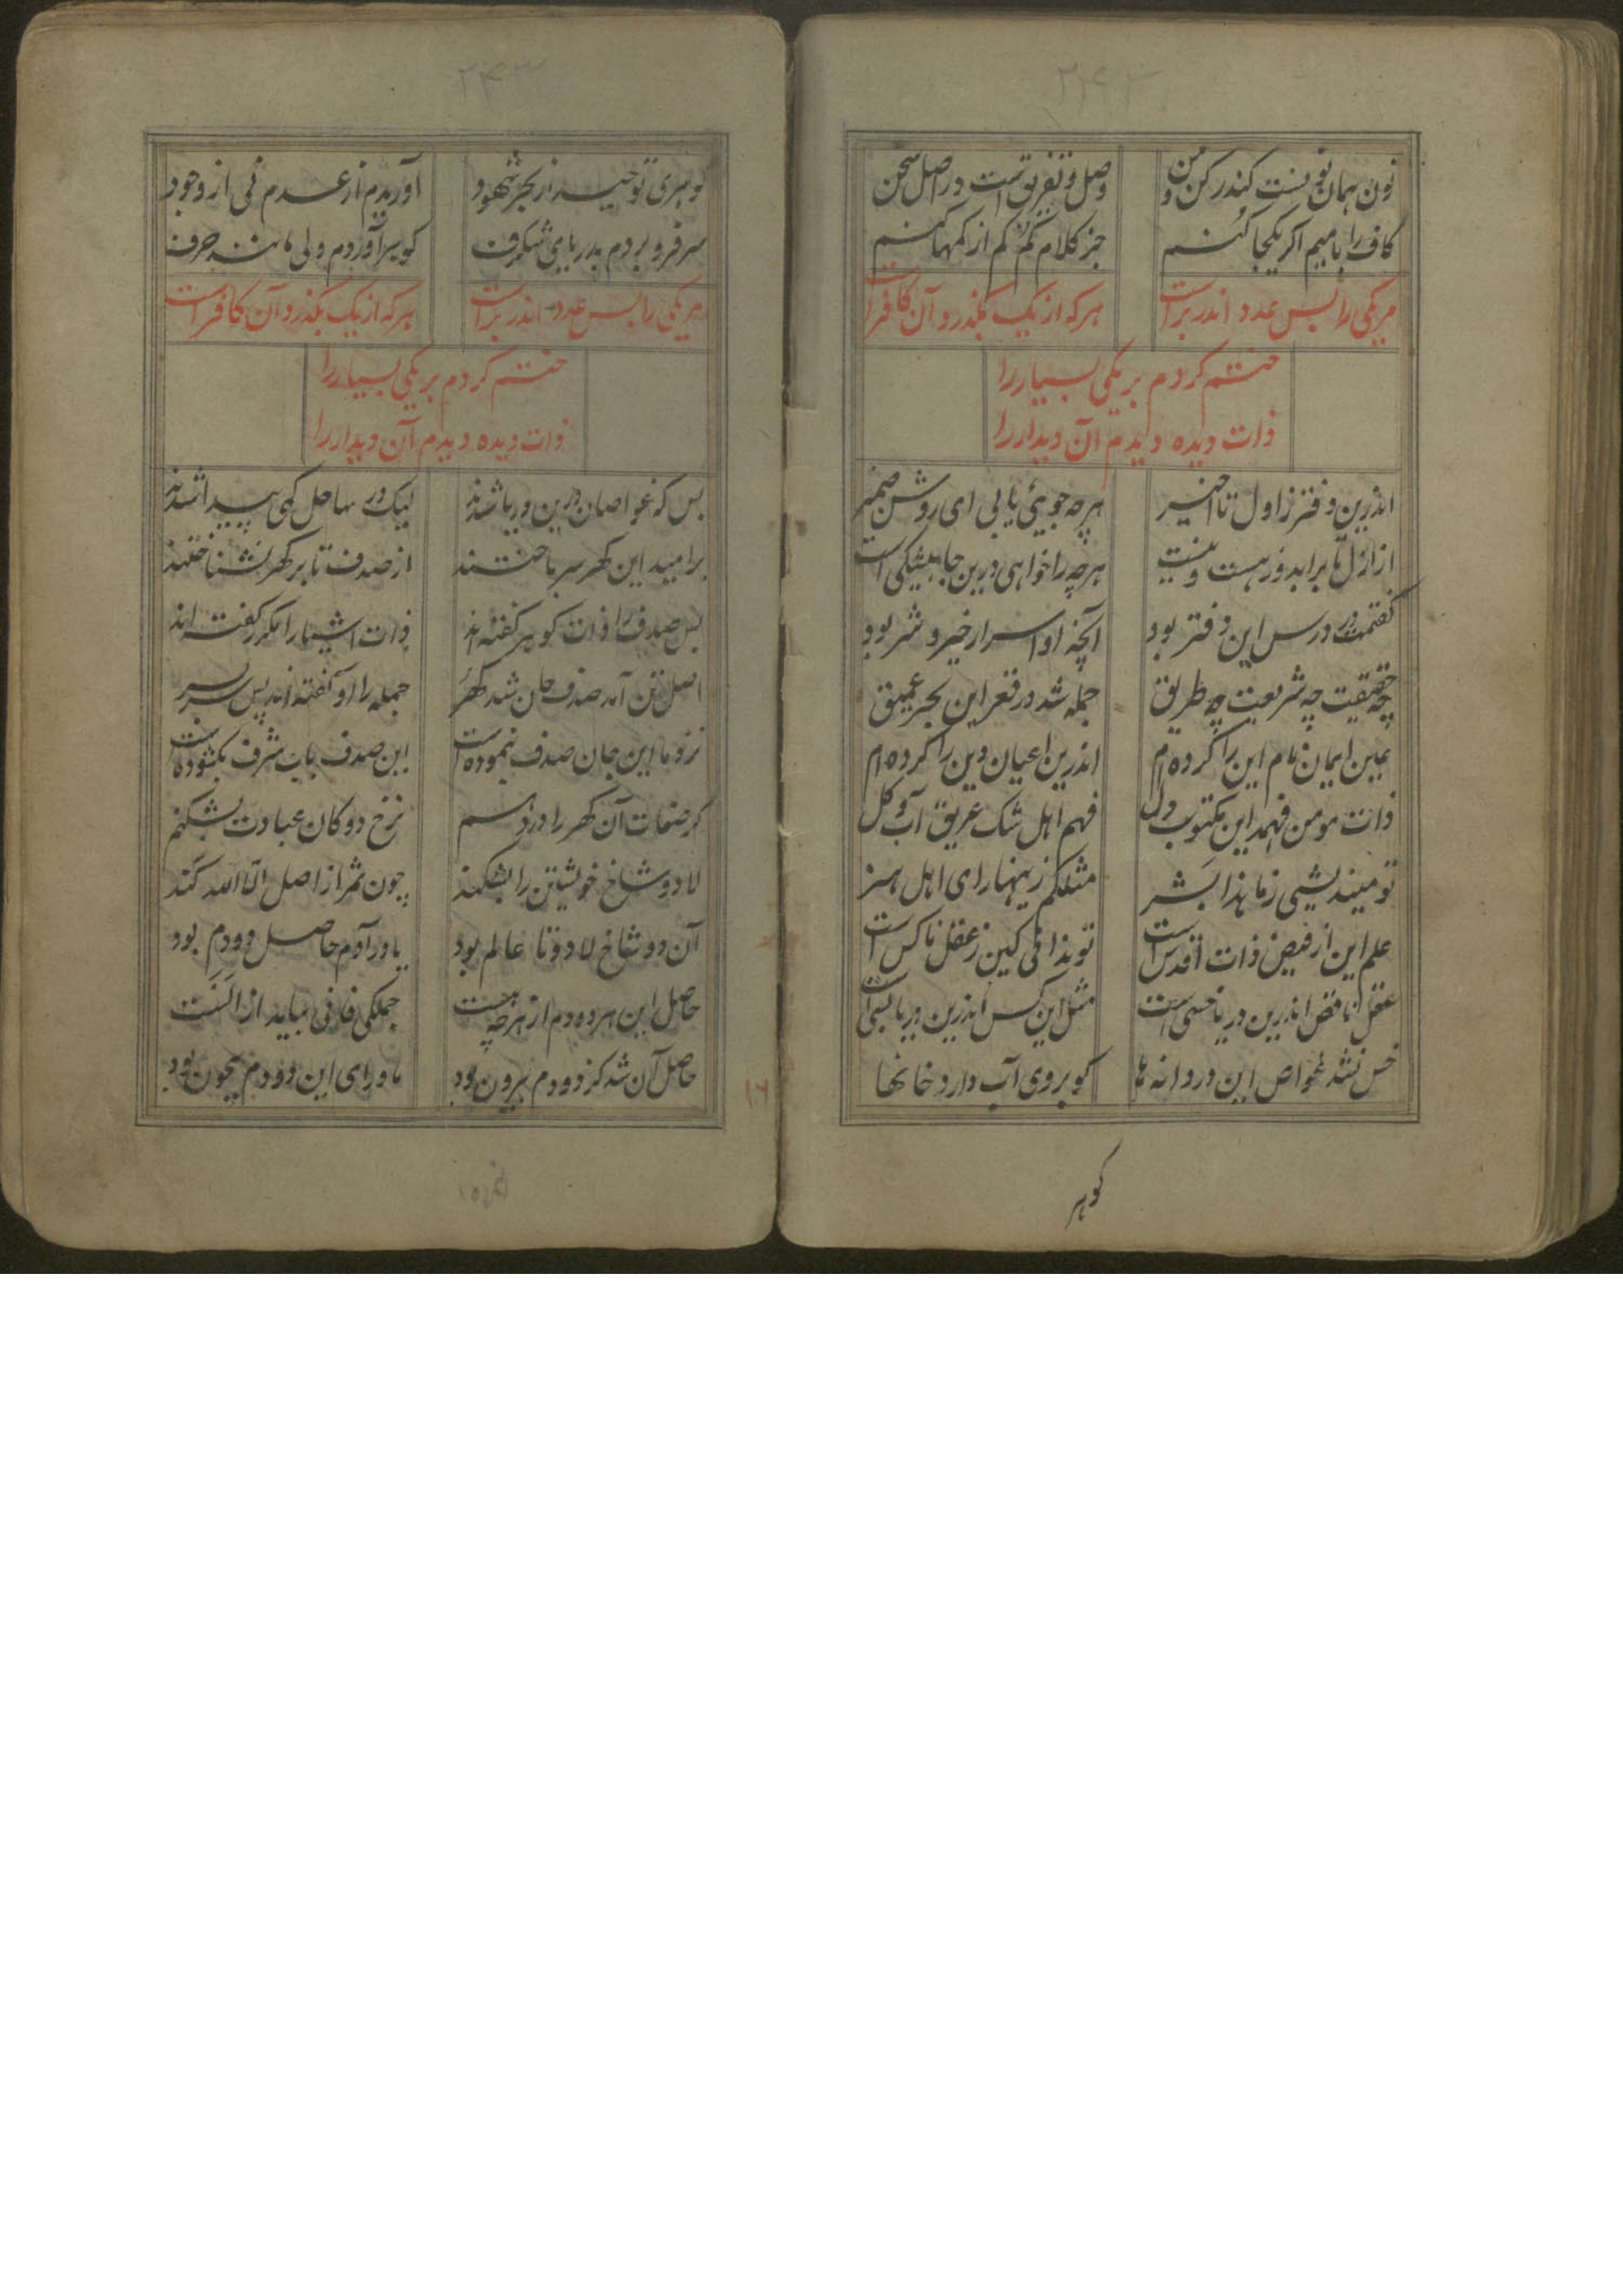 ۲۴۲
نون همان نویست کندر کن و من وصل و تفریق است در اصل سخن
کاف را با میم اگر یکجا کنم جز کلام کم کم از کمها کنم
مر یکی را بس عدد اندر بر است هر که از یک بگذرد آن کافر است
ختم کردم بر یکی بسیار را
ذات دیده دیدم آن دیدار را
اندرین دفتر ز اول تا اخیر هر چه جویی یابی ای روشن ضمیر
از ازل تا بر ابد وز هست و نیست هر چه را خواهی درین جا بیشکی است
گفتمت در درس این دفتر بود آنچه او اسرار خیر و شر بود
چه حقیقت چه شریعت چه طریق جمله شد در قعر این بحر عمیق
عین ایمان نام این را کرده ام اندرین اعیان دین را کرده ام
ذات مومن فهمد این مکتوب دل فهم اهل شک غریق آب و گل
تو میندیشی ز ما هذا بشر مثلکم زینهار ای اهل هنر
علم این از فیض ذات اقدس است تو ندانی کین ز عقل ناکس است
عقل ناقص اندرین دریا خسی است مثل این کس اندرین دریا بسی است
خس نشد غواص این دردانه ها کو بروی آب دارد خانها
گوهر
۲۴۳
گوهری توحید از بحر شهود آوریدم از عدم نی از وجود
سر فرو بردم بدریای شگرف گوهر آوردم ولی مانند حرف
مر یکی را بس عدد اندر بر است هر که از یک بگذرد آن کافر است
ختم کردم بر یکی بسیار را
ذات دیده دیدم آن دیدار را
بس که غواصان درین دریا شدند لیک در ساحل کهی پیدا شدند
بر امید این گهر سر باختند از صدف تا بر گهر نشناختند
بس صدف را ذات گوهر گفته اند ذات اشیا را مکرر گفته اند
اصل تن آمد صدف جان شد گهر جمله را او گفته اند پس سر بسر
نزد ما این جان صدف نیموده است این صدف باب شرف بگشوده است
گر صفات آن گهر را در زسم نرخ دوکان عبادت بشکنم
لا دو شاخ خویشتن را بشکند چون ثمر از اصل الا الله کند
آن دو شاخ لا دو تا عالم بود یاور آدم حاصل دو دم بود
حاصل این هر دو دم از هر چه هست جملگی فانی بباید از الست
حاصل آن شد کز دو دم بیرون بود ماورای این دو دم بیچون بود
۱۶